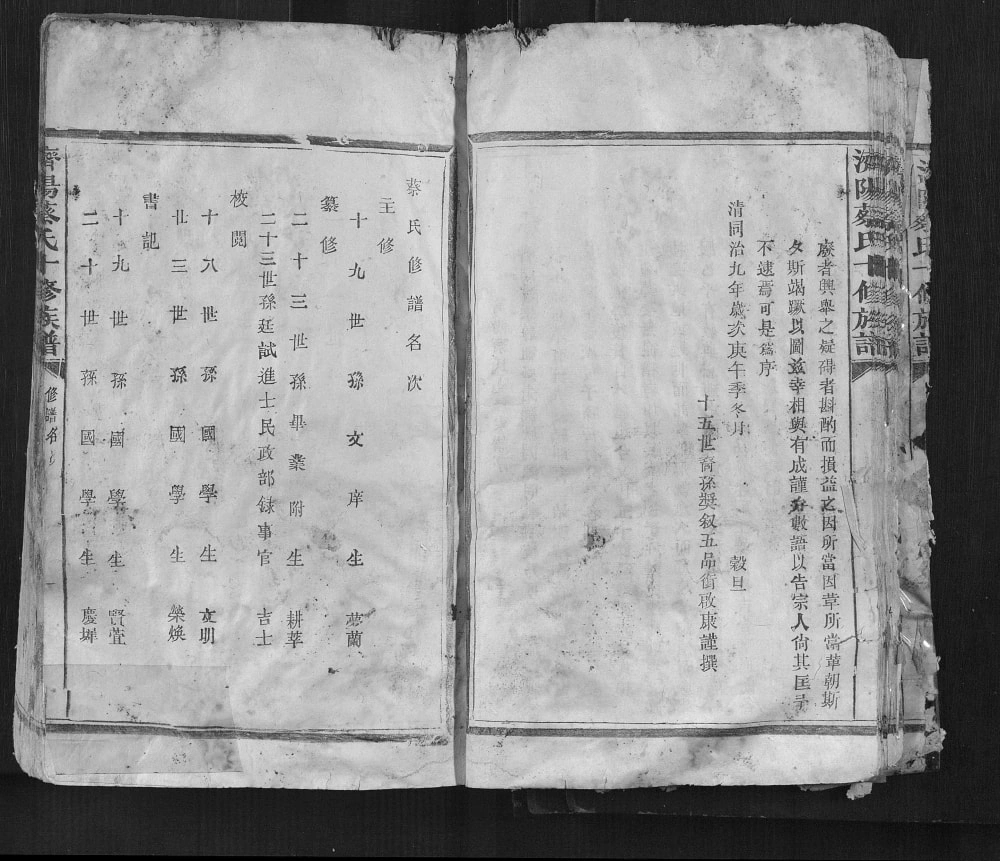 濟陽蔡氏十修族譜
廢者興舉之疑碍者斟酌而損益之因所當因革所當革朝斯
夕斯竭蹶以圖兹幸相與有成謹弁數語以告宗人尙其匡予
不逮焉可是爲序
清同治九年歲次庚午季冬月 穀旦
十五世裔孫奬叙五品銜啟康謹撰
蔡氏修譜名次
主修
十九世孫文庠生 夢蘭
纂修
二十三世孫畢業附生 耕莘
二十三世孫廷試進士民政部錄事官 吉士
校閱
十八世孫國學生 文明
廿三世孫國學生 榮煥
書記
十九世孫國學生 賢萱
二十世孫國學生 慶墀
濟陽蔡氏十修族譜
修譜名